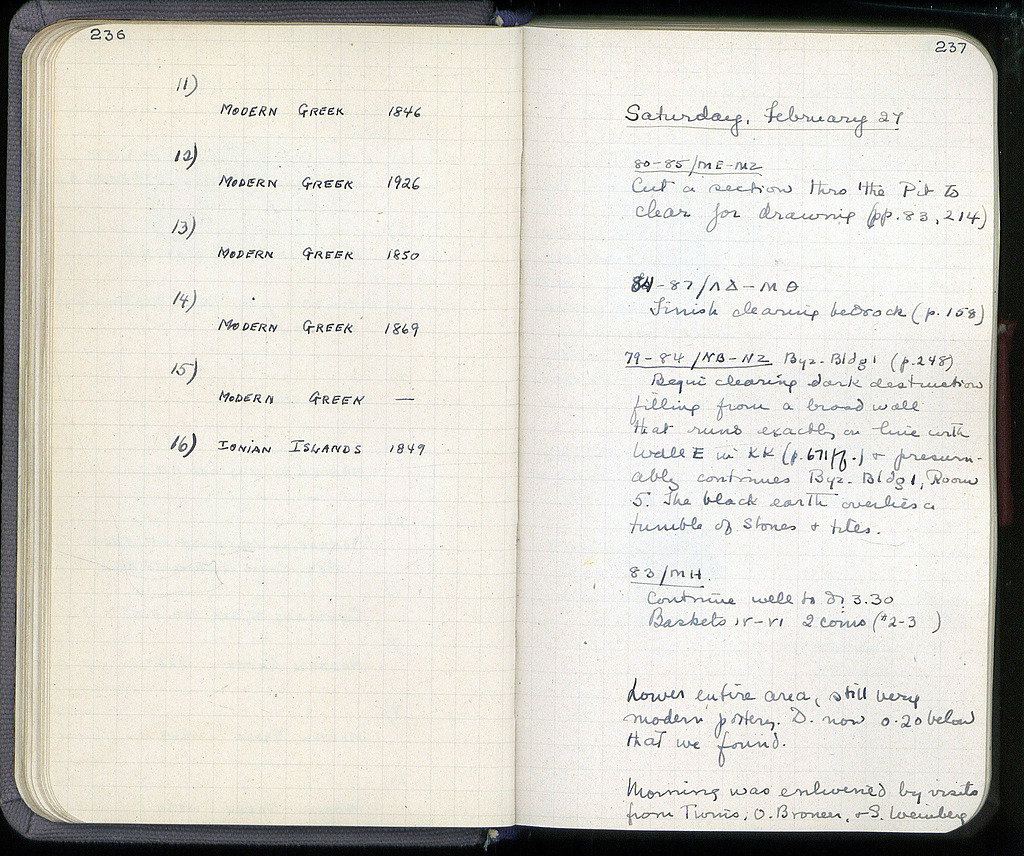 236
11)
MODERN GREEK 1846
12)
MODERN GREEK 1926
13)
MODERN GREEK 1850
14)
MODERN GREEK 1869
15)
MODERN GREEK —
16) IONIAN ISLANDS 1849
237
Saturday, February 27
80-85/ME-MZ
Cut a section thro the Pit to
clear for drawing (pp. 83, 214)
84-87/ΛΔ-ΜΘ
Finish clearing bedrock (p. 158)
79-84/NB-NZ Byz. Bldg 1 (p. 248)
Begin clearing dark destruction
filling from a broad wall
that runs exactly on line with
Wall E in KK (p. 671ff.) + presum-
ably continues Byz. Bldg 1, Room
5. The black earth overlies a
tumble of stones + tiles.
83/MH.
Continue well to d. 3.30
Baskets IV-VI 2 coins (#2-3 )
Lower entire area, still very
modern pottery. D. now 0.20 below
that we found.
Morning was enlivened by visits
from Timis, O. Broneer, + S. Weinberg